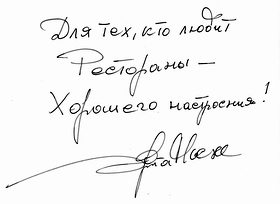 Для тех, кто любит
Рестораны —
Хорошего настроения!